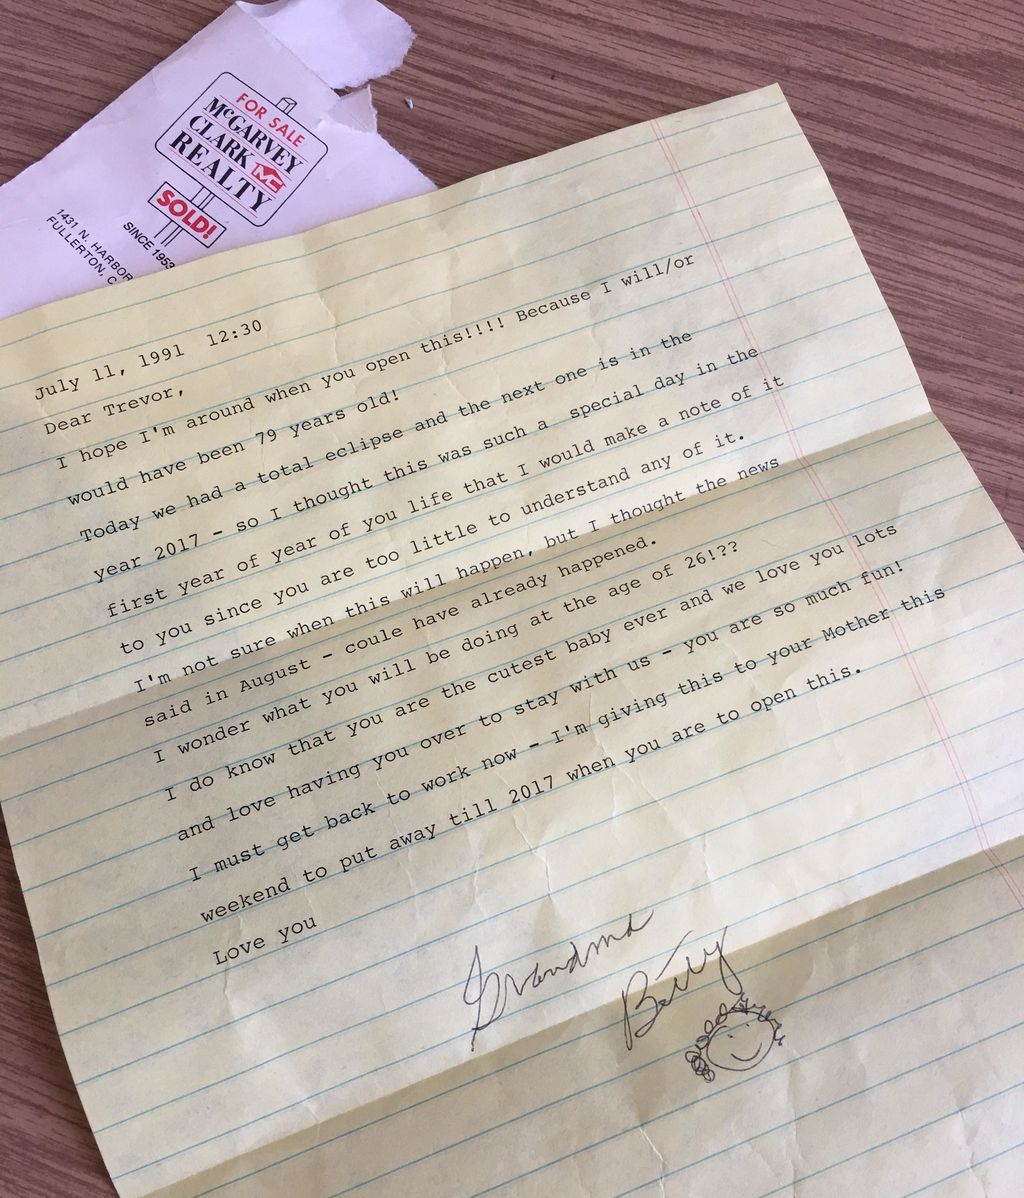 FOR SALE
McGARVEY
CLARK
REALTY
SOLD!
SINCE 1953
1431 N. HARBOR
FULLERTON, C
July 11, 1991  12:30
Dear Trevor,
I hope I'm around when you open this!!!! Because I will/or
would have been 79 years old!
Today we had a total eclipse and the next one is in the
year 2017 - so I thought this was such a  special day in the
first year of year of you life that I would make a note of it
to you since you are too little to understand any of it.
I'm not sure when this will happen, but I thought the news
said in August - coule have already happened.
I wonder what you will be doing at the age of 26!??
I do know that you are the cutest baby ever and we love you lots
and love having you over to stay with us - you are so much fun!
I must get back to work now - I'm giving this to your Mother this
weekend to put away till 2017 when you are to open this.
Love you
Grandma
Betty